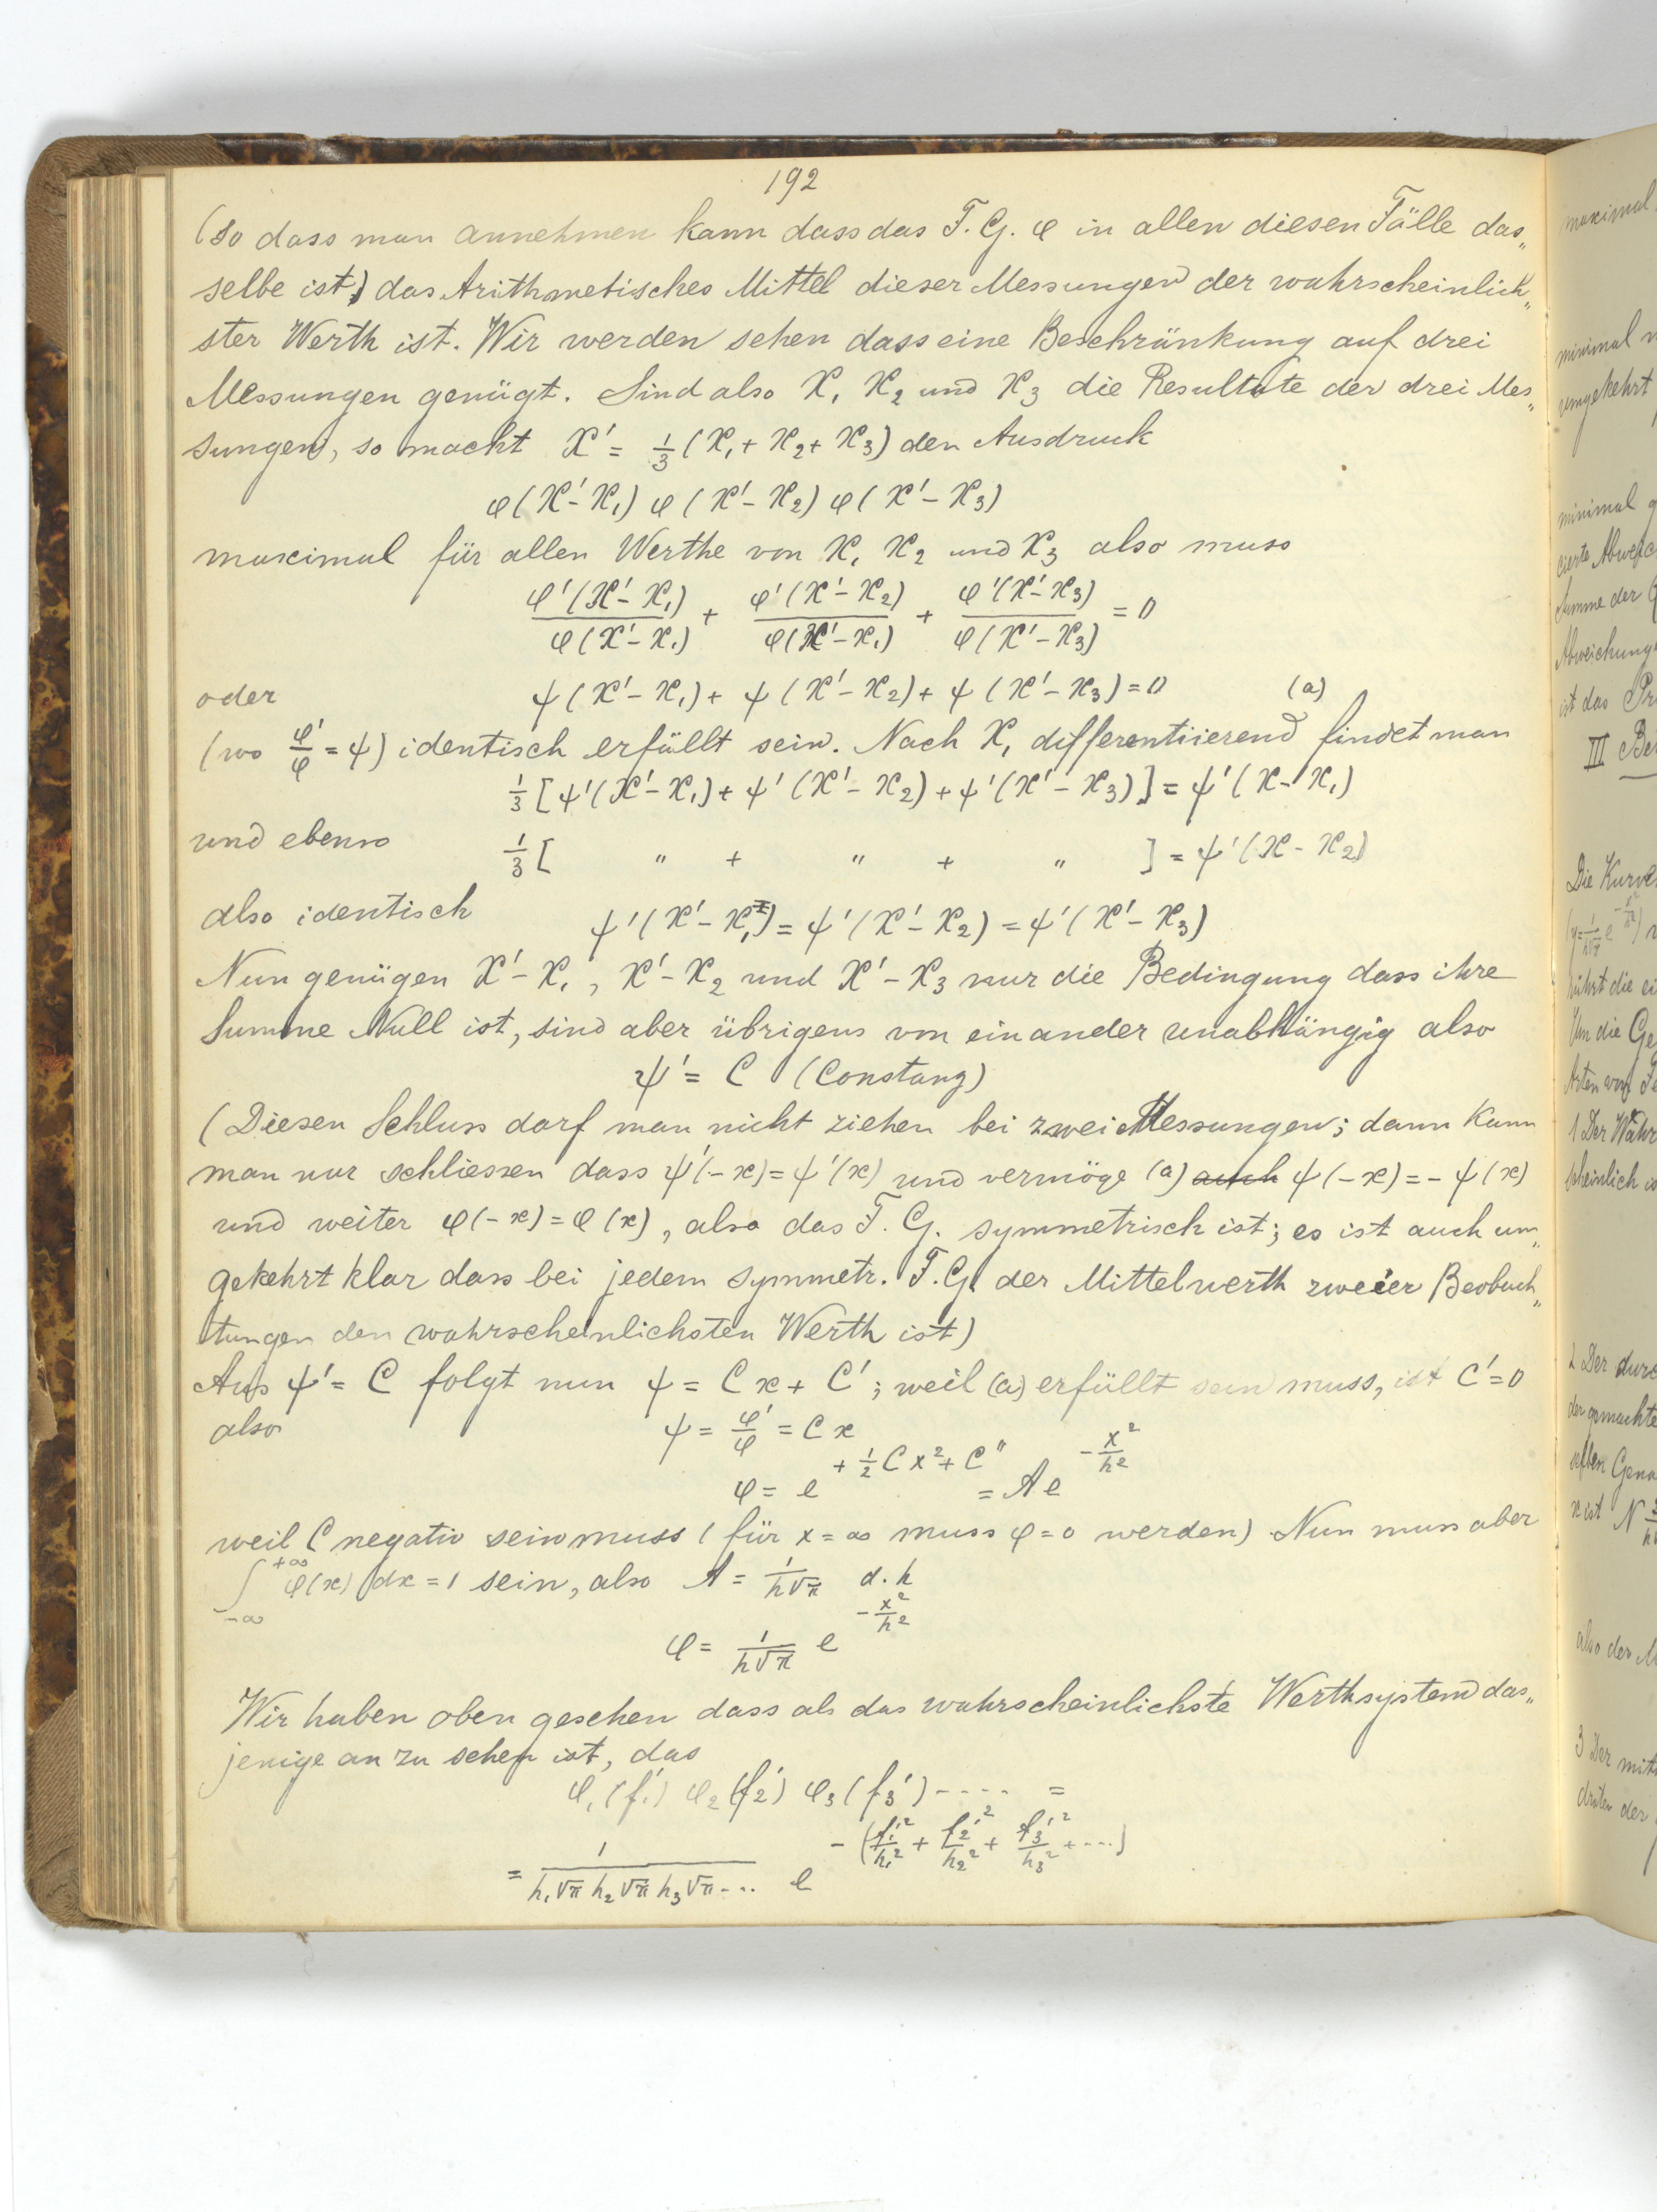 192
(so dass man annehmen kann dass das F. G. φ in allen diesen Fälle das„
selbe ist) das Arithmetisches Mittel dieser Messungen der wahrscheinlich„
ster Werth ist. Wir werden sehen dass eine Beschränkung auf drei
Messungen genügt. Sind also X₁ X₂ und X₃ die Resultate der drei Mes„
sungen, so macht X' = 1/3 (X₁ + X₂ + X₃) den Ausdruck
φ(X'-X₁) φ(X'-X₂) φ(X'-X₃)
maximal für allen Werthe von X₁ X₂ und X₃ also muss
φ'(X'-X₁)/φ(X'-X₁) + φ'(X'-X₂)/φ(X'-X₁) + φ'(X'-X₃)/φ(X'-X₃) = 0
oder ψ(X'-X₁) + ψ(X'-X₂) + ψ(X'-X₃) = 0 (a)
(wo φ'/φ = ψ) identisch erfüllt sein. Nach X₁ differentiierend findet man
1/3 [ψ'(X'-X₁) + ψ'(X'-X₂) + ψ'(X'-X₃)] = ψ'(X-X₁)
und ebenso 1/3 [ " + " + " ] = ψ'(X-X₂)
also identisch ψ'(X'-X₁) = ψ'(X'-X₂) = ψ'(X'-X₃)
Nun genügen X'-X₁, X'-X₂ und X'-X₃ nur die Bedingung dass ihre
Summe Null ist, sind aber übrigens von einander unabhängig also
ψ' = C (Constanz)
(Diesen Schluss darf man nicht ziehen bei zwei Messungen; dann kann
man nur schliessen dass ψ'(-x) = ψ'(x) und vermöge (a) auch ψ(-x) = -ψ(x)
und weiter φ(-x) = φ(x), also das F. G. symmetrisch ist; es ist auch um„
gekehrt klar dass bei jedem symmetr. F. G. der Mittelwerth zweier Beobach„
tungen den wahrscheinlichsten Werth ist)
Aus ψ' = C folgt nun ψ = Cx + C'; weil (a) erfüllt sein muss, ist C' = 0
also ψ = φ'/φ = Cx
φ = e^(+ 1/2 Cx² + C") = A e^(-x²/h²)
weil C negativ sein muss (für x = ∞ muss φ = 0 werden) Nun muss aber
∫_{-∞}^{+∞} φ(x) dx = 1 sein, also A = 1/(h√π) d. h
φ = 1/(h√π) e^(-x²/h²)
Wir haben oben gesehen dass als das wahrscheinlichste Werthsystem das„
jenige an zu sehen ist, das
φ₁(f₁') φ₂(f₂') φ₃(f₃') ---- =
= 1/(h₁√π h₂√π h₃√π ...) e^(-(f₁'²/h₁² + f₂'²/h₂² + f₃'²/h₃² + ....))
maximal
minimal
umgekehrt
minimal
cierte
Summe der
Abweichung
ist das
III Be
Die Kurve
führt die
Um die Ge
Arten von
1 Der Wahr
scheinlich
2 Der durc
der gemachte
selben Gena
x ist N
also der M
3 Der mitt
dritten der